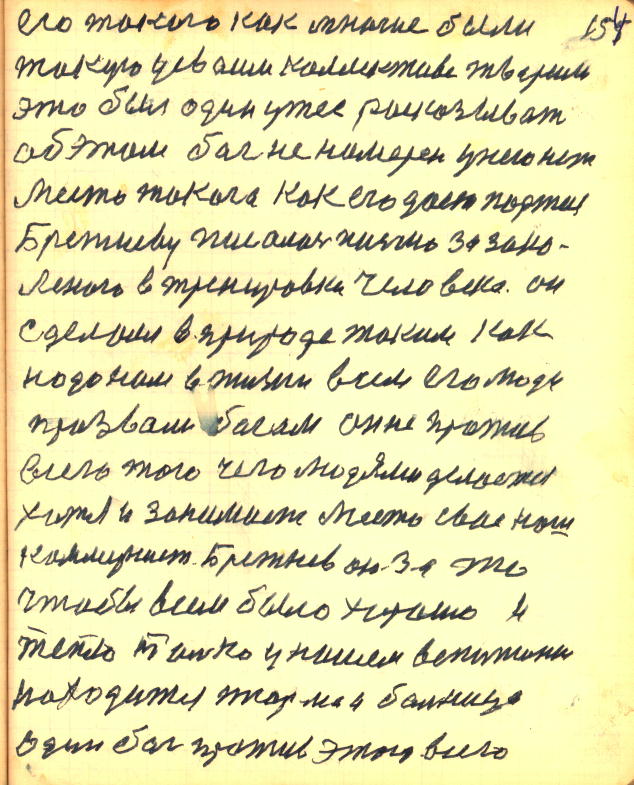 его такого как многие были 154
такую
это был один уже расказыват
об этом бог не намерен у него нет
место такога как его дает партия
Брежневу писалось лично за зако-
леного в тренировки человека. он
сделал в природе таким как
надо нам в жизни всем его люди
прозвали богам он не против
всего того чего людями делается
хотя и занимает место свае наш
коммунист. Брежнев он за то
чтобы всем было хорошо и
тепло только у нашем
находится тюрма и болница
один бог против этого всего